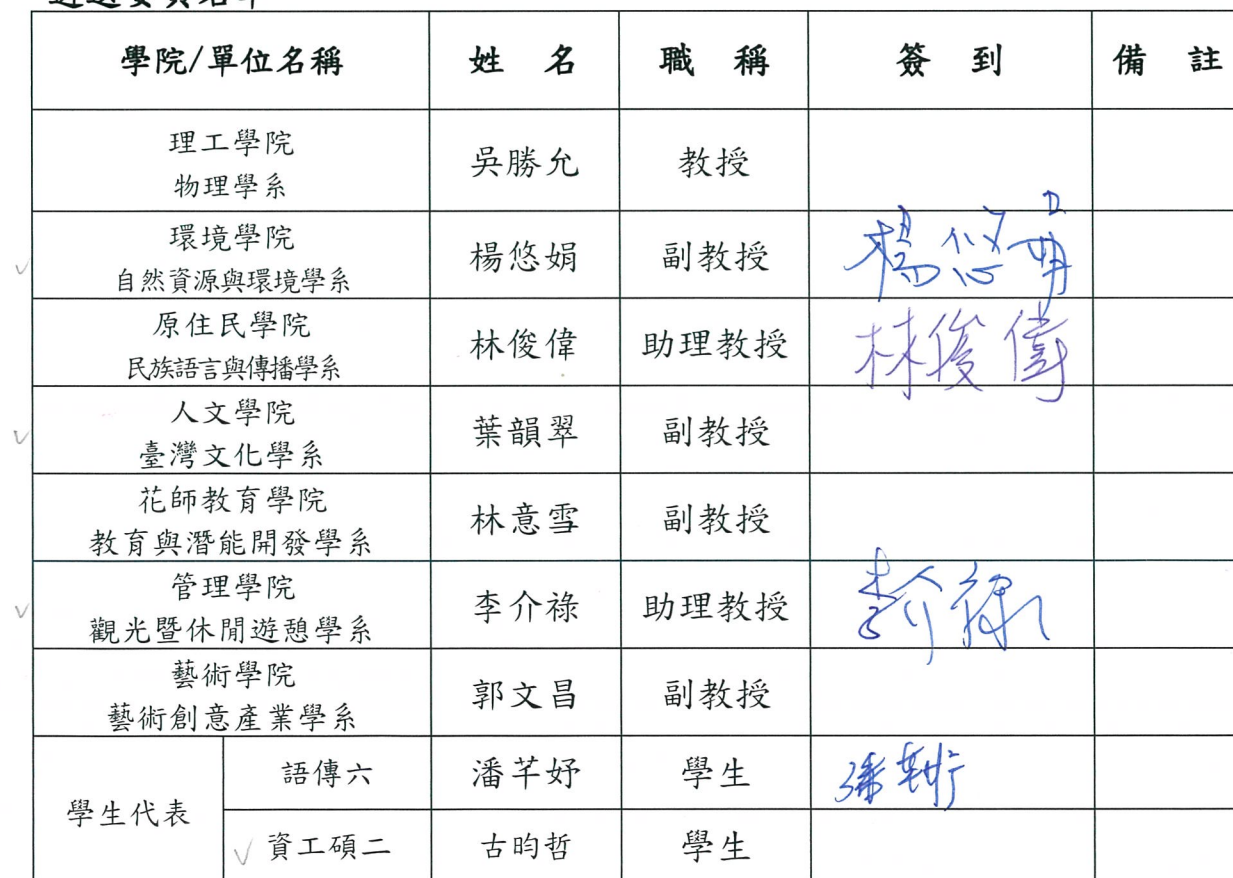 學院/單位名稱 姓 名 職 稱 簽 到 備 註
理工學院
物理學系 吳勝允 教授
環境學院
自然資源與環境學系 楊悠娟 副教授 楊悠娟
原住民學院
民族語言與傳播學系 林俊偉 助理教授 林俊偉
人文學院
臺灣文化學系 葉韻翠 副教授
花師教育學院
教育與潛能開發學系 林意雪 副教授
管理學院
觀光暨休閒遊憩學系 李介祿 助理教授 李介祿
藝術學院
藝術創意產業學系 郭文昌 副教授
學生代表 語傳六 潘芊妤 學生 潘芊妤
資工碩二 古昀哲 學生